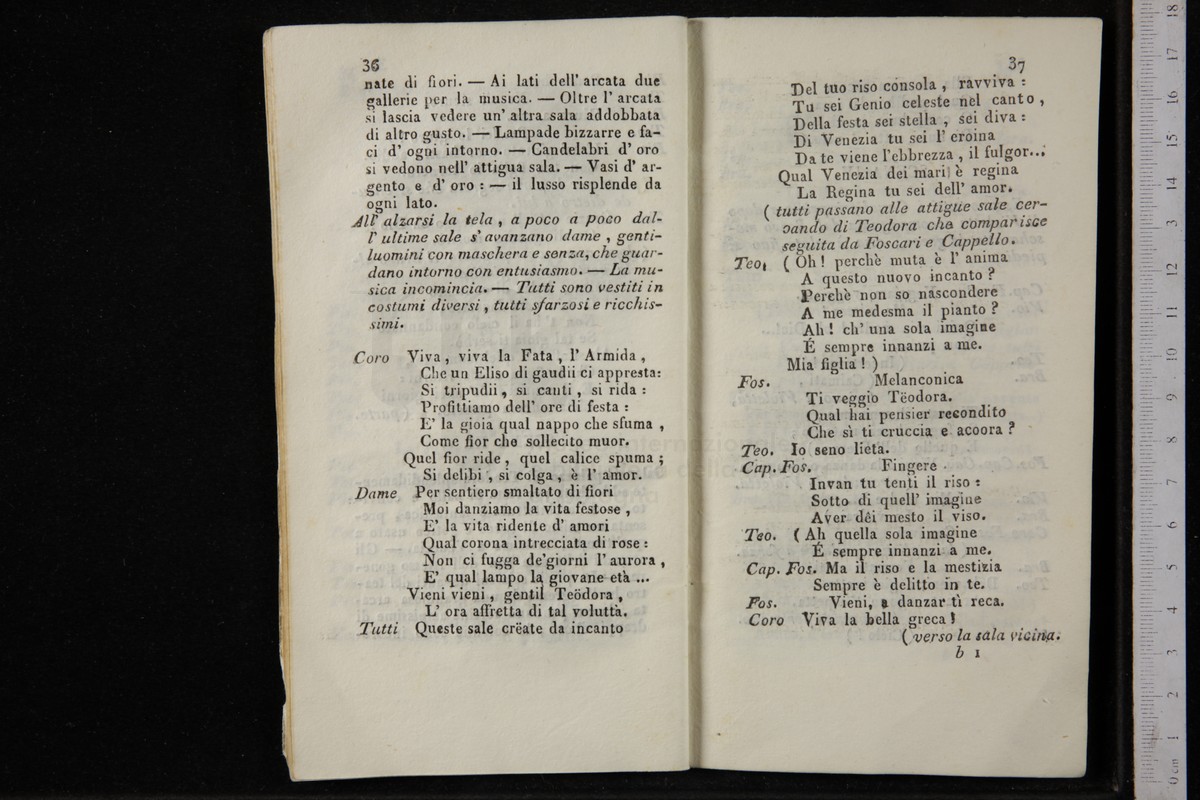 36
nate di fiori. — Ai lati dell' arcata due
gallerie per la musica. — Oltre l' arcata
si lascia vedere un' altra sala addobbata
di altro gusto. — Lampade bizzarre e fa-
ci d' ogni intorno. — Candelabri d' oro
si vedono nell' attigua sala. — Vasi d' ar-
gento e d' oro : — il lusso risplende da
ogni lato.
All' alzarsi la tela , a poco a poco dal-
l' ultime sale s' avanzano dame , genti-
luomini con maschera e senza, che guar-
dano intorno con entusiasmo. — La mu-
sica incomincia. — Tutti sono vestiti in
costumi diversi , tutti sfarzosi e ricchis-
simi.
Coro Viva , viva la Fata , l' Armida ,
Che un Eliso di gaudii ci appresta:
Si tripudii , si canti , si rida :
Profittiamo dell' ore di festa :
E' la gioia qual nappo che sfuma ,
Come fior che sollecito muor.
Quel fior ride , quel calice spuma ;
Si delibi , si colga , è l' amor.
Dame Per sentiero smaltato di fiori
Moi danziamo la vita festose ,
E' la vita ridente d' amori
Qual corona intrecciata di rose :
Non ci fugga de'giorni l' aurora ,
E' qual lampo la giovane età ...
Vieni vieni , gentil Teödora ,
L' ora affretta di tal voluttà.
Tutti Queste sale crëate da incanto
37
Del tuo riso consola , ravviva :
Tu sei Genio celeste nel canto ,
Della festa sei stella , sei diva :
Di Venezia tu sei l' eroina
Da te viene l'ebbrezza , il fulgor...
Qual Venezia dei mari è regina
La Regina tu sei dell' amor.
( tutti passano alle attigue sale cer-
cando di Teodora che comparisce
seguita da Foscari e Cappello.
Teo. ( Oh ! perchè muta è l' anima
A questo nuovo incanto ?
Perchè non so nascondere
A me medesma il pianto ?
Ah ! ch' una sola imagine
É sempre innanzi a me.
Mia figlia ! )
Fos. Melanconica
Ti veggio Tëodora.
Qual hai pensier recondito
Che sì ti cruccia e accora ?
Teo. Io seno lieta.
Cap. Fos. Fingere
Invan tu tenti il riso :
Sotto di quell' imagine
Aver dêi mesto il viso.
Teo. ( Ah quella sola imagine
É sempre innanzi a me.
Cap. Fos. Ma il riso e la mestizia
Sempre è delitto in te.
Fos. Vieni, a danzar tì reca.
Coro Viva la bella greca !
( verso la sala vicina.
b 1